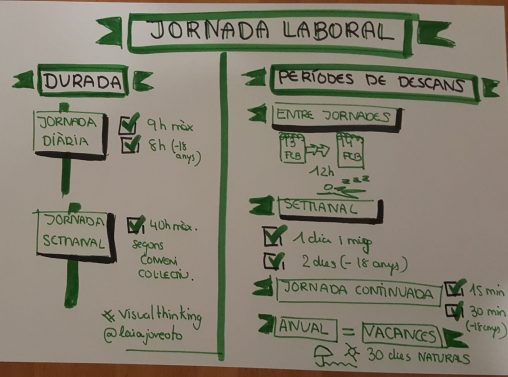 JORNADA LABORAL
DURADA
JORNADA
DIÀRIA
9h màx
8h (-18
anys)
JORNADA
SETMANAL
40h màx.
segons
CONVENI
COL·LECTIU.
#visualthinking
PERÍODES DE DESCANS
ENTRE JORNADES
13
FEB
14
FEB
12h
zzz
SETMANAL
1 dia i mig
2 dies (-18 anys)
JORNADA CONTINUADA
15 min
30 min
(-18 anys)
ANUAL = VACANCES
30 dies NATURALS